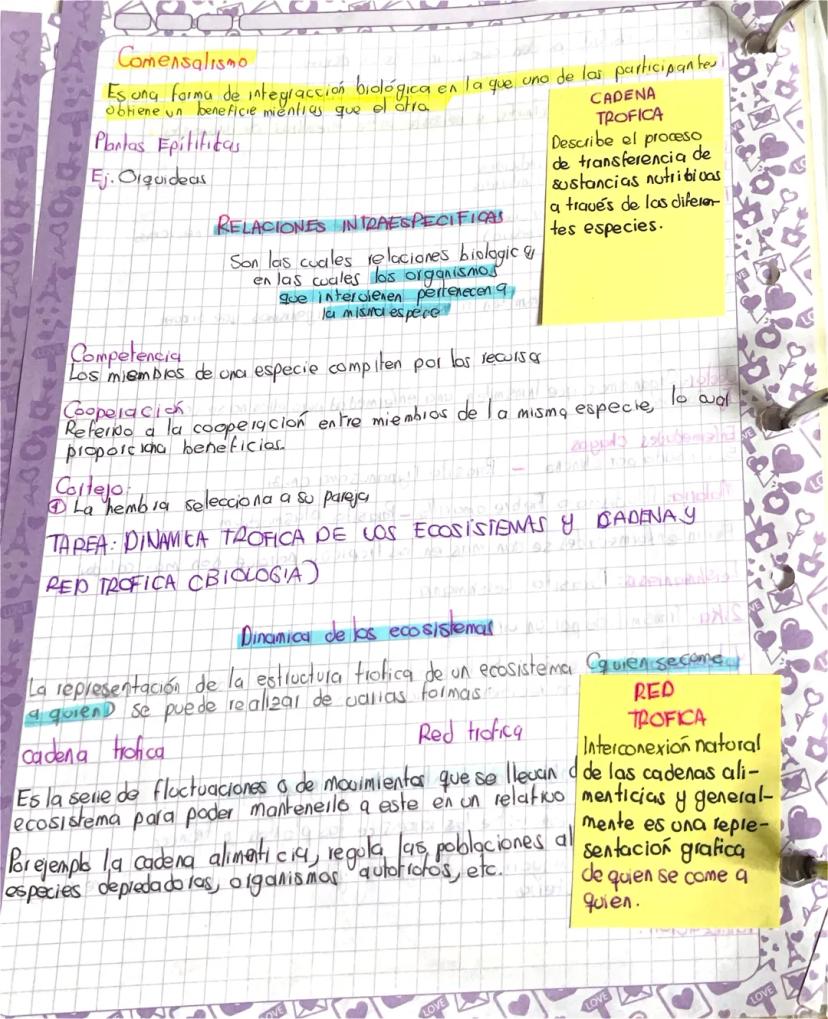 Comensalismo
Es una forma de integracción biológica en la que uno de los participantes
obtiene un beneficie mientras que el otro
Plantas Epitifitas
Ej. Orquideas
CADENA
TROFICA
Describe el proceso
de transferencia de
sustancias nutritivas
a través de las diferen-
tes especies.
RELACIONES INTRAESPECIFICAS
Son las cuales relaciones biologica
en las cuales los organismos
que intervienen pertenecen a
la misma espece
Competencia
Los miembros de una especie compiten por los recursos
Cooperación
Referido a la cooperación entre miembros de la misma especie, lo cual
proporciona beneficios.
Cortejo:
① La hembra selecciona a su pareja
TAREA: DINAMICA TROFICA DE LOS ECOSISTEMAS Y CADENA Y
RED TROFICA (BIOLOGIA)
Dinamica de los ecosistemas
La representación de la estructura trofica de un ecosistema (quien se come
a quien) se puede realizar de varias formas
cadena trofica
Red trofica
Es la serie de fluctuaciones o de movimientos que se llevan
ecosistema para poder mantenerlo a este en un relativo
Por ejemplo la cadena alimenticia, regula las poblaciones al
especies depredadoras, organismos autotrofos, etc.
RED
TROFICA
Interconexión natural
de las cadenas ali-
menticias y general-
mente es una repre-
sentación grafica
de quien se come a
quien.